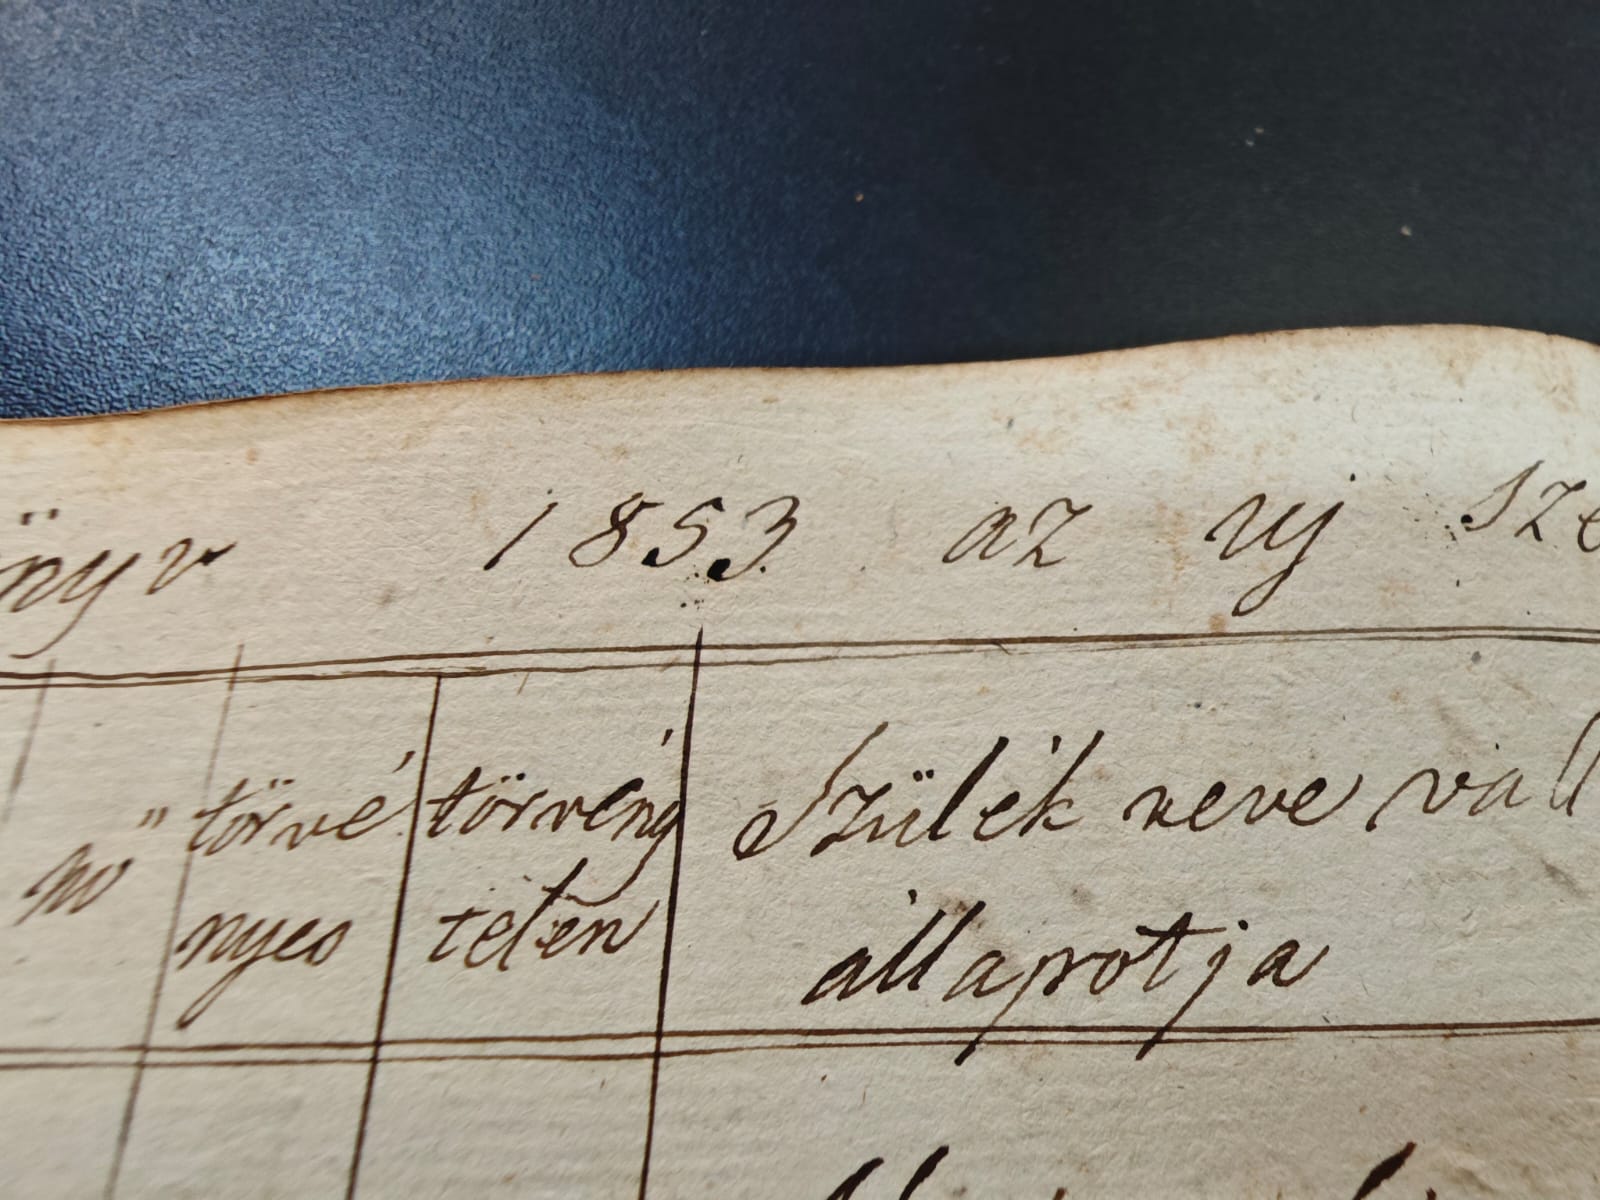 önyv 1853. az uj sze
nő törvé törvény Szülék neve vall
nyes telen állapotja